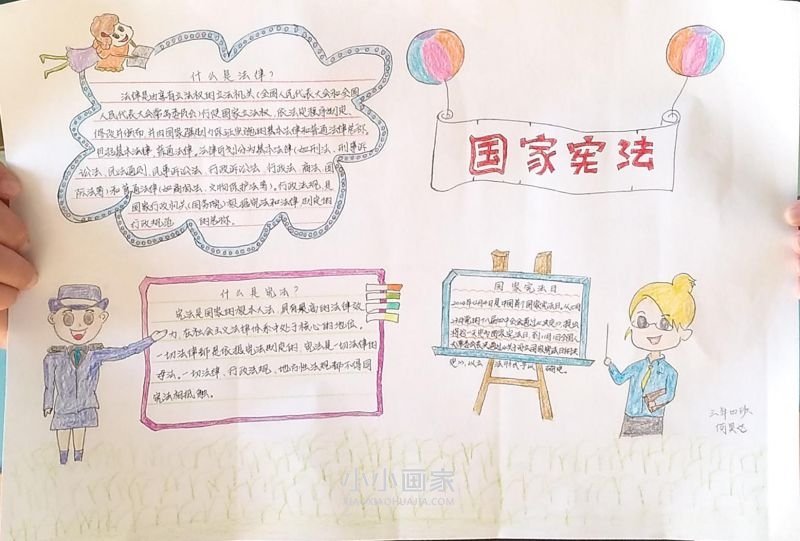 什么是法律？
法律是由享有立法权的立法机关(全国人民代表大会和全国
人民代表大会常务委员会)行使国家立法权，依法定程序制定、
修改并颁布，并由国家强制力保证实施的基本法律和普通法律总称。
包括基本法律、普通法律。法律可划分为基本法律(如刑法、刑事诉
讼法、民法通则、民事诉讼法、行政诉讼法、行政法、商法、国
际法等)和普通法律(如商标法、文物保护法等)。行政法规，是
国家行政机关(国务院)根据宪法和法律制定的
行政规范的总称。
国家宪法
什么是宪法？
宪法是国家的根本大法，具有最高的法律效
力，在社会主义法律体系中处于核心的地位，
一切法律都是依据宪法制定的，宪法是一切法律的
母法。一切法律、行政法规、地方性法规都不得同
宪法相抵触。
国家宪法日
2014年12月4日是中国首个国家宪法日。
三年四班
小小画家
XIAOXIAOHUAJIA.COM